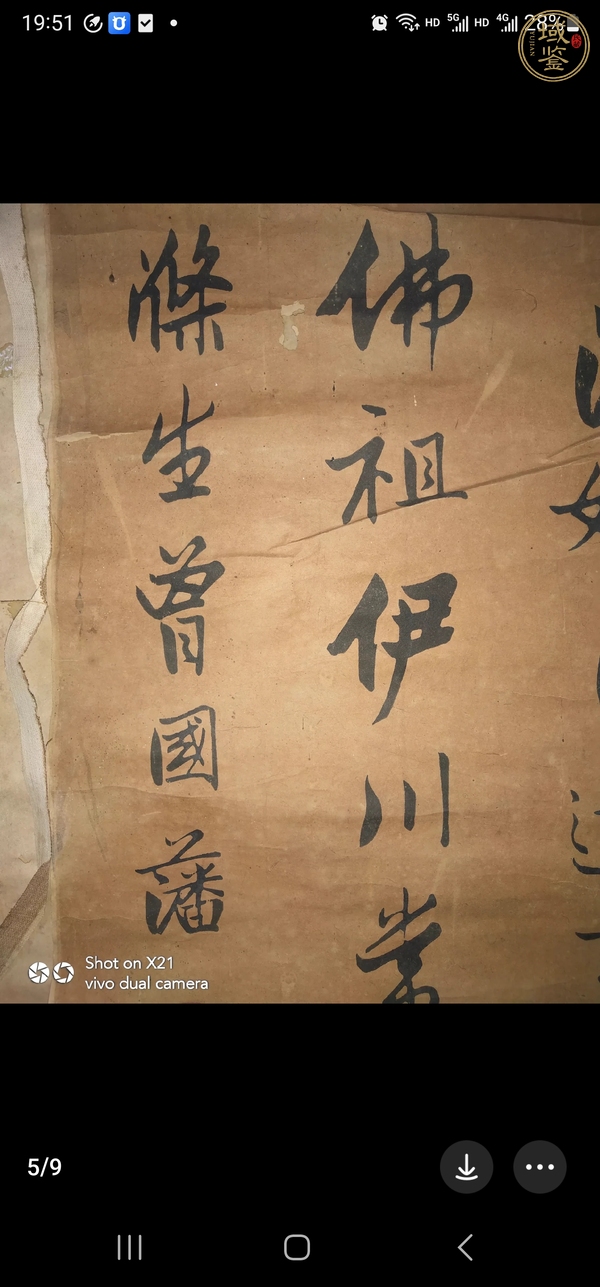 19:51
HD 5G HD 4G 28%
域鉴
YUJIAN
佛祖伊川常
滌生曾國藩
Shot on X21
vivo dual camera
5/9